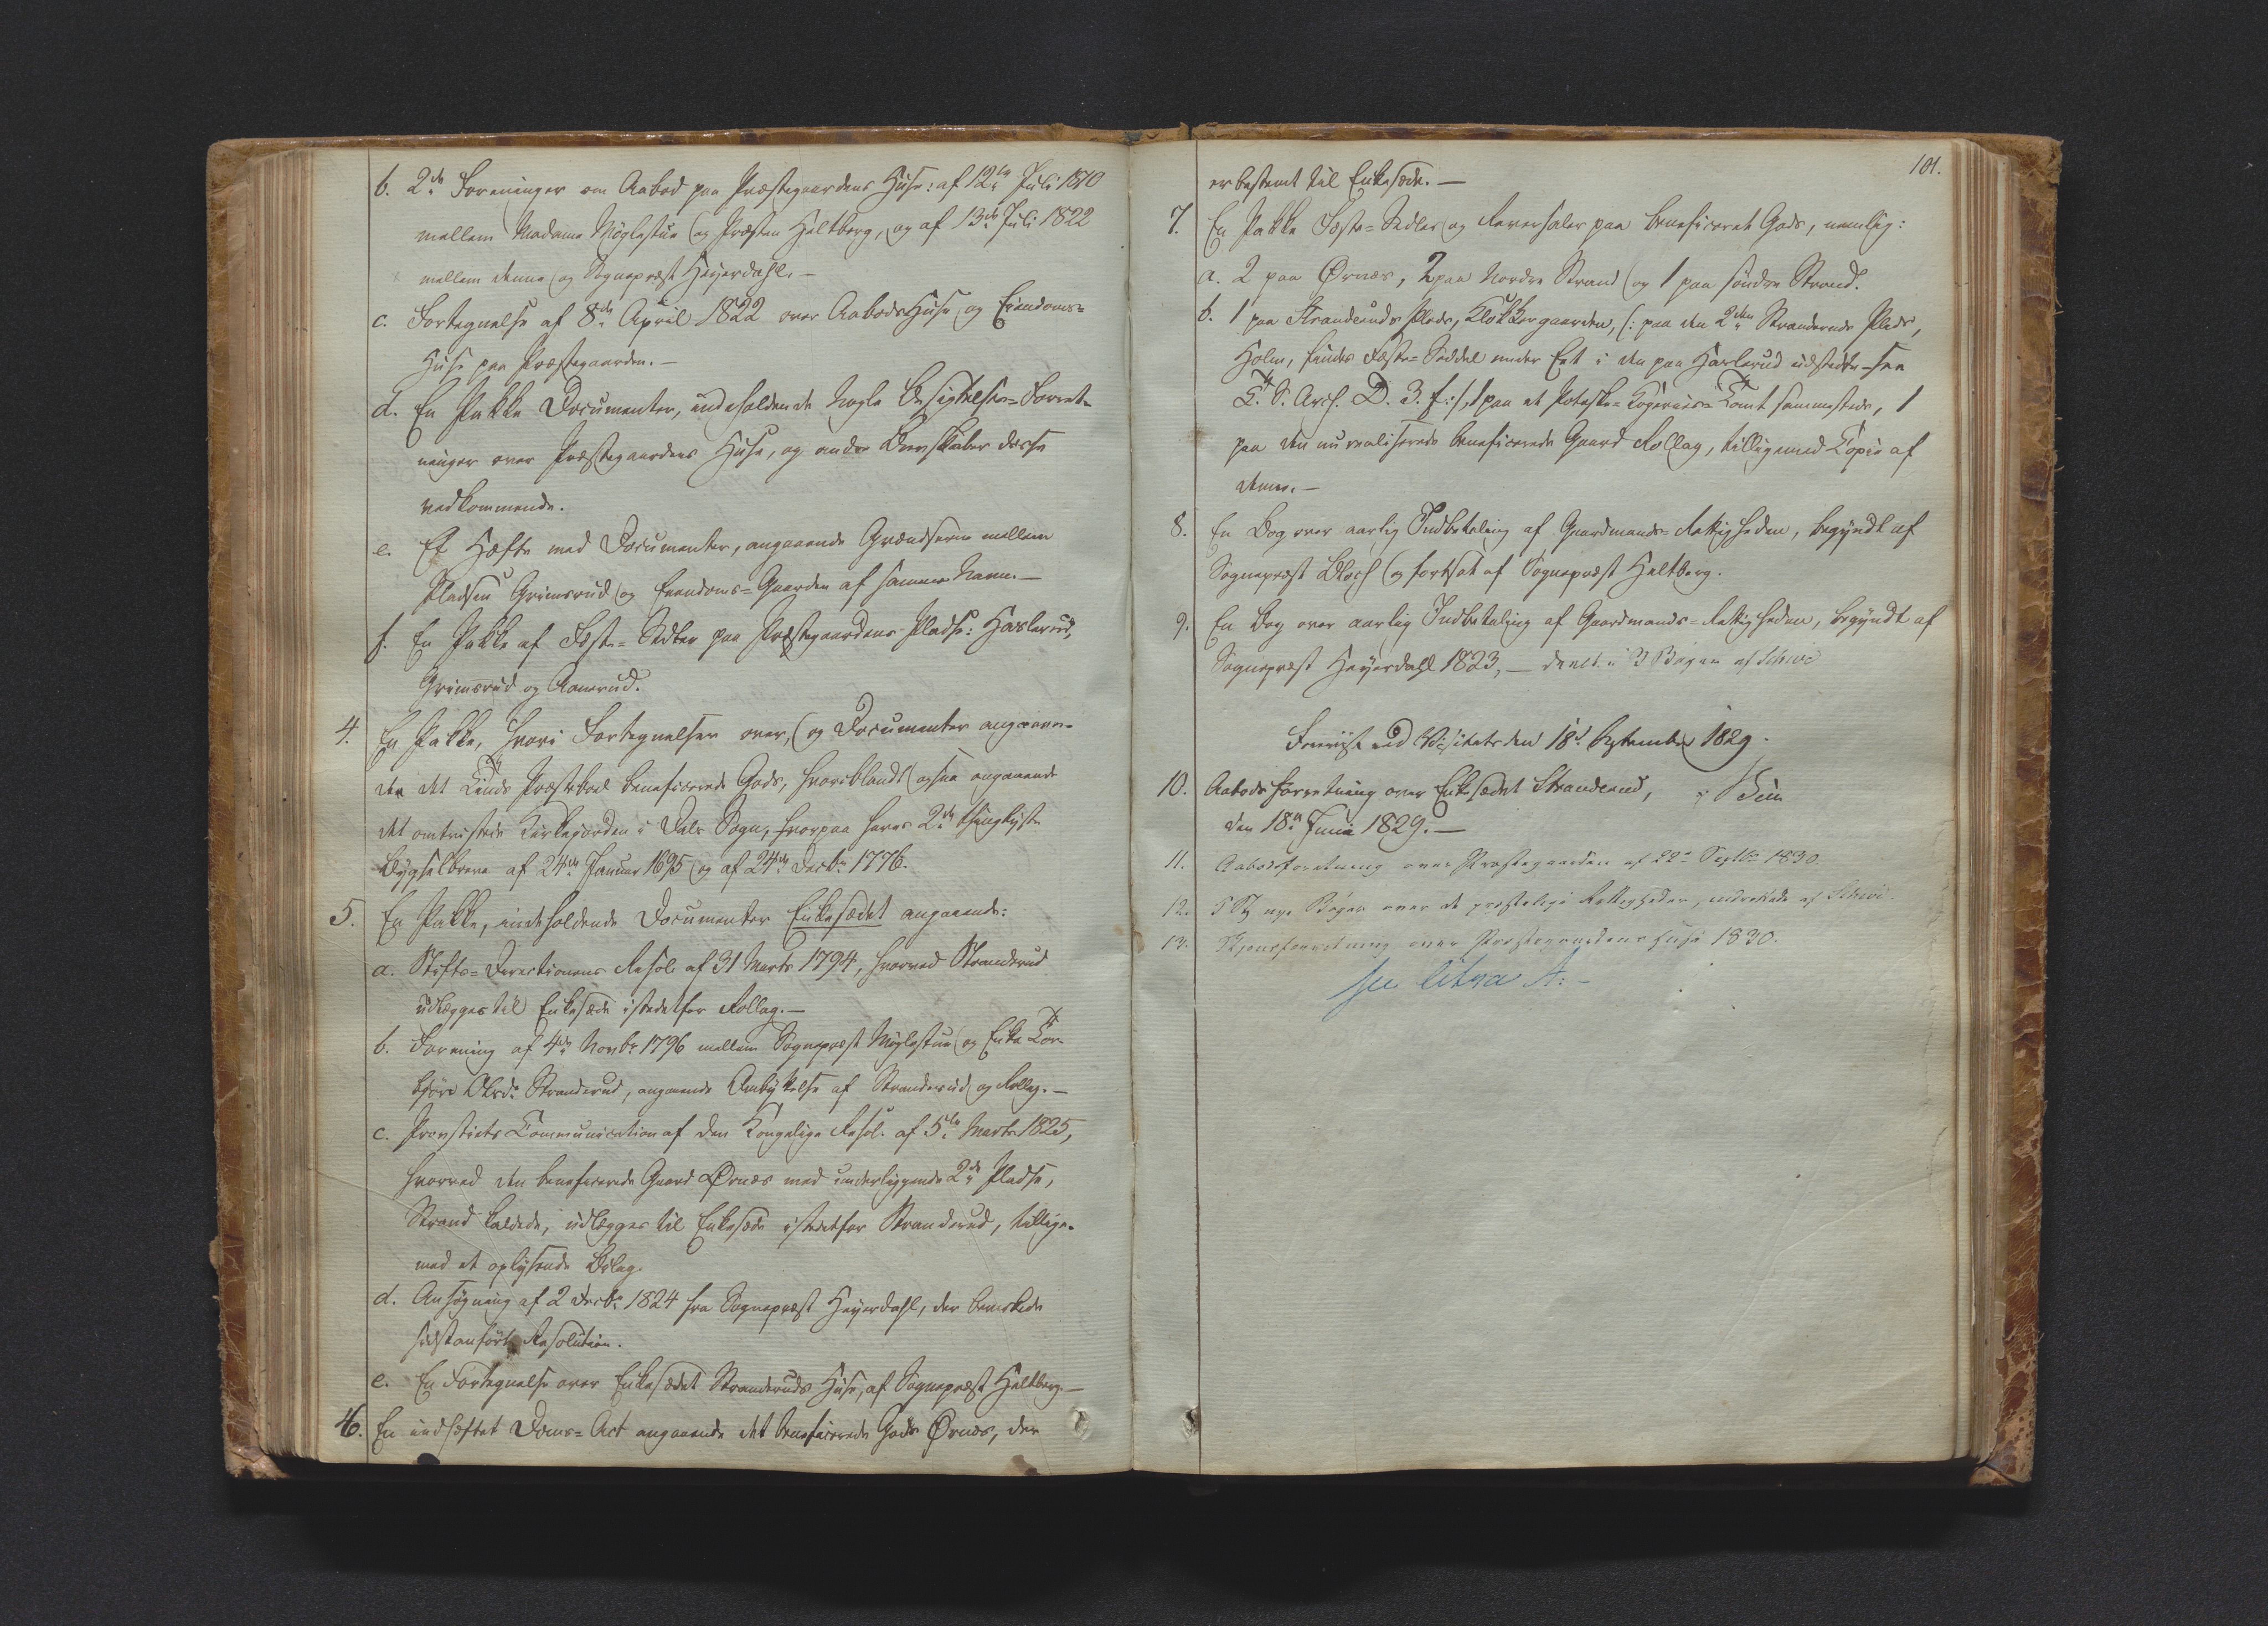 b. 2de Foreninger om Aabod paa Præstegaardens Huse: af 12te Juli 1810
mellem Madame Möglestue og Præsten Heltberg, og af 13de Juli 1822
mellem denne og Sognepræst Heyerdahl. —
c. Fortegnelse af 8de April 1822 over AabodsHuse og Eiendoms=
Huse paa Præstegaarden. —
d. En Pakke Documenter, indeholdende Nogle Besigtelses=Forret-
ninger over Præstegaardens Huse, og andre Brevskaber disse
vedkommende.
e. Et Hæfte med Documenter, angaaende Grændserne mellem
Pladsen Grimsrud og Eiendoms=Gaarden af samme Navn. —
f. En Pakke af Fæste=Sedler paa Præstegaardens Pladse: Haslerud,
Grimsrud og Aanerud.
4. En Pakke, hvori Fortegnelser over, og Documenter angaaen-
de det Linds Præstebol beneficerede Gods, hvoriblandt ogsaa angaaende
det omtvistede Kirkejorden i Dals Sogn, hvorpaa haves 2de thinglyste
Bygselbreve af 24de Januar 1695 og af 24de Decbr 1776.
5. En Pakke, indeholdende Documenter Enkesædet angaaende:
a. Stifts=Directionens Resol. af 31 Marts 1794, hvorved Stranderud
udlægges til Enkesæde istedetfor Rollag. —
b. Forening af 4de Novbr 1796 mellem Sognepræst Möglestue og Enke Tor-
björ Olsdr Stranderud, angaaende Ombyttelse af Stranderud og Rollag. —
c. Provstiets Communication af den Kongelige Resol. af 5te Marts 1825,
hvorved den beneficerede Gaard Ørnæs med underliggende 2de Pladse,
Strand kaldede, udlægges til Enkesæde istedetfor Stranderud, tillige-
med et oplysende Bilag.
d. Ansögning af 2 Decbr 1824 fra Sognepræst Heyerdahl, der bevirkede
sidstanförte Resolution.
e. En Fortegnelse over Enkesædet Stranderuds Huse, af Sognepræst Heltberg. —
6. En indhæftet Doms=Act angaaende det beneficerede Gods Ørnæs, der
101.
er bestemt til Enkesæde. —
7. En Pakke Fæste=Sedler og Reversaler paa beneficeret Gods, nemlig:
a. 2 paa Ørnæs, 2 paa Nordre Strand og 1 paa söndre Strand.
b. 1 paa Stranderuds Plads, Klokkergaarden, (: paa den 2den Stranderuds Plads,
Holm, findes Fæste=Seddel under Eet i den paa Haslerud udstedte – see
Arch. D. 3. f :), 1 paa et Potaske=Kogeries=Tomt sammesteds, 1
paa den nu realiserede beneficerede Gaard Rollag, tilligemed Copie af
denne. —
8. En Bog over aarlig Indbetaling af Gaardmands=Rettigheden, begyndt af
Sognepræst Bloch og fortsat af Sognepræst Heltberg.
9. En Bog over aarlig Indbetaling af Gaardmands=Rettigheden, begyndt af
Sognepræst Heyerdahl 1823, — deelt i 3 Böger af Schive
Foreviist ved Visitats den 18d September 1829.
10. Aabodsforretning over Enkesædet Stranderud,
den 18de Junii 1829. —
11. Aabodsforretning over Præstegaarden af 22d Septbr 1830.
12. 5 St nye Böger over de præstelige Rettigheder, indrettede af Schive.
13. over Præstegaardens Huse 1830.
see litra A: –